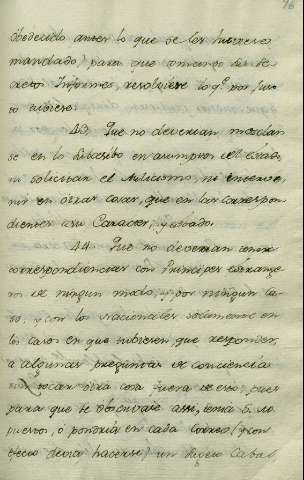 76
obedecido antes lo que se les hubiese
mandado) para que
Informes, resolviese lo q.e por jus
to tubiese
43. Que no deverian, mesclar
se en lo en asumptos de estado,
ni solicitar el Aulicismo, ni interve
nir en otras cosas, que en las correspon
dientes a su Caracter, y estado.
44. Que no deverian tener
correspondencias con Principes estrange
ros de ningun modo, y por ningun ca
so, y con los Nacionales solamente en
los casos en que tubiesen, que responder,
a algunas preguntas de conciencia
sin tocar otra cosa fuera de eso; pues
para que se observase assi, tenia
puesto, ó pondria en cada Correo (y con
efecto devia hacerse) un Cabal